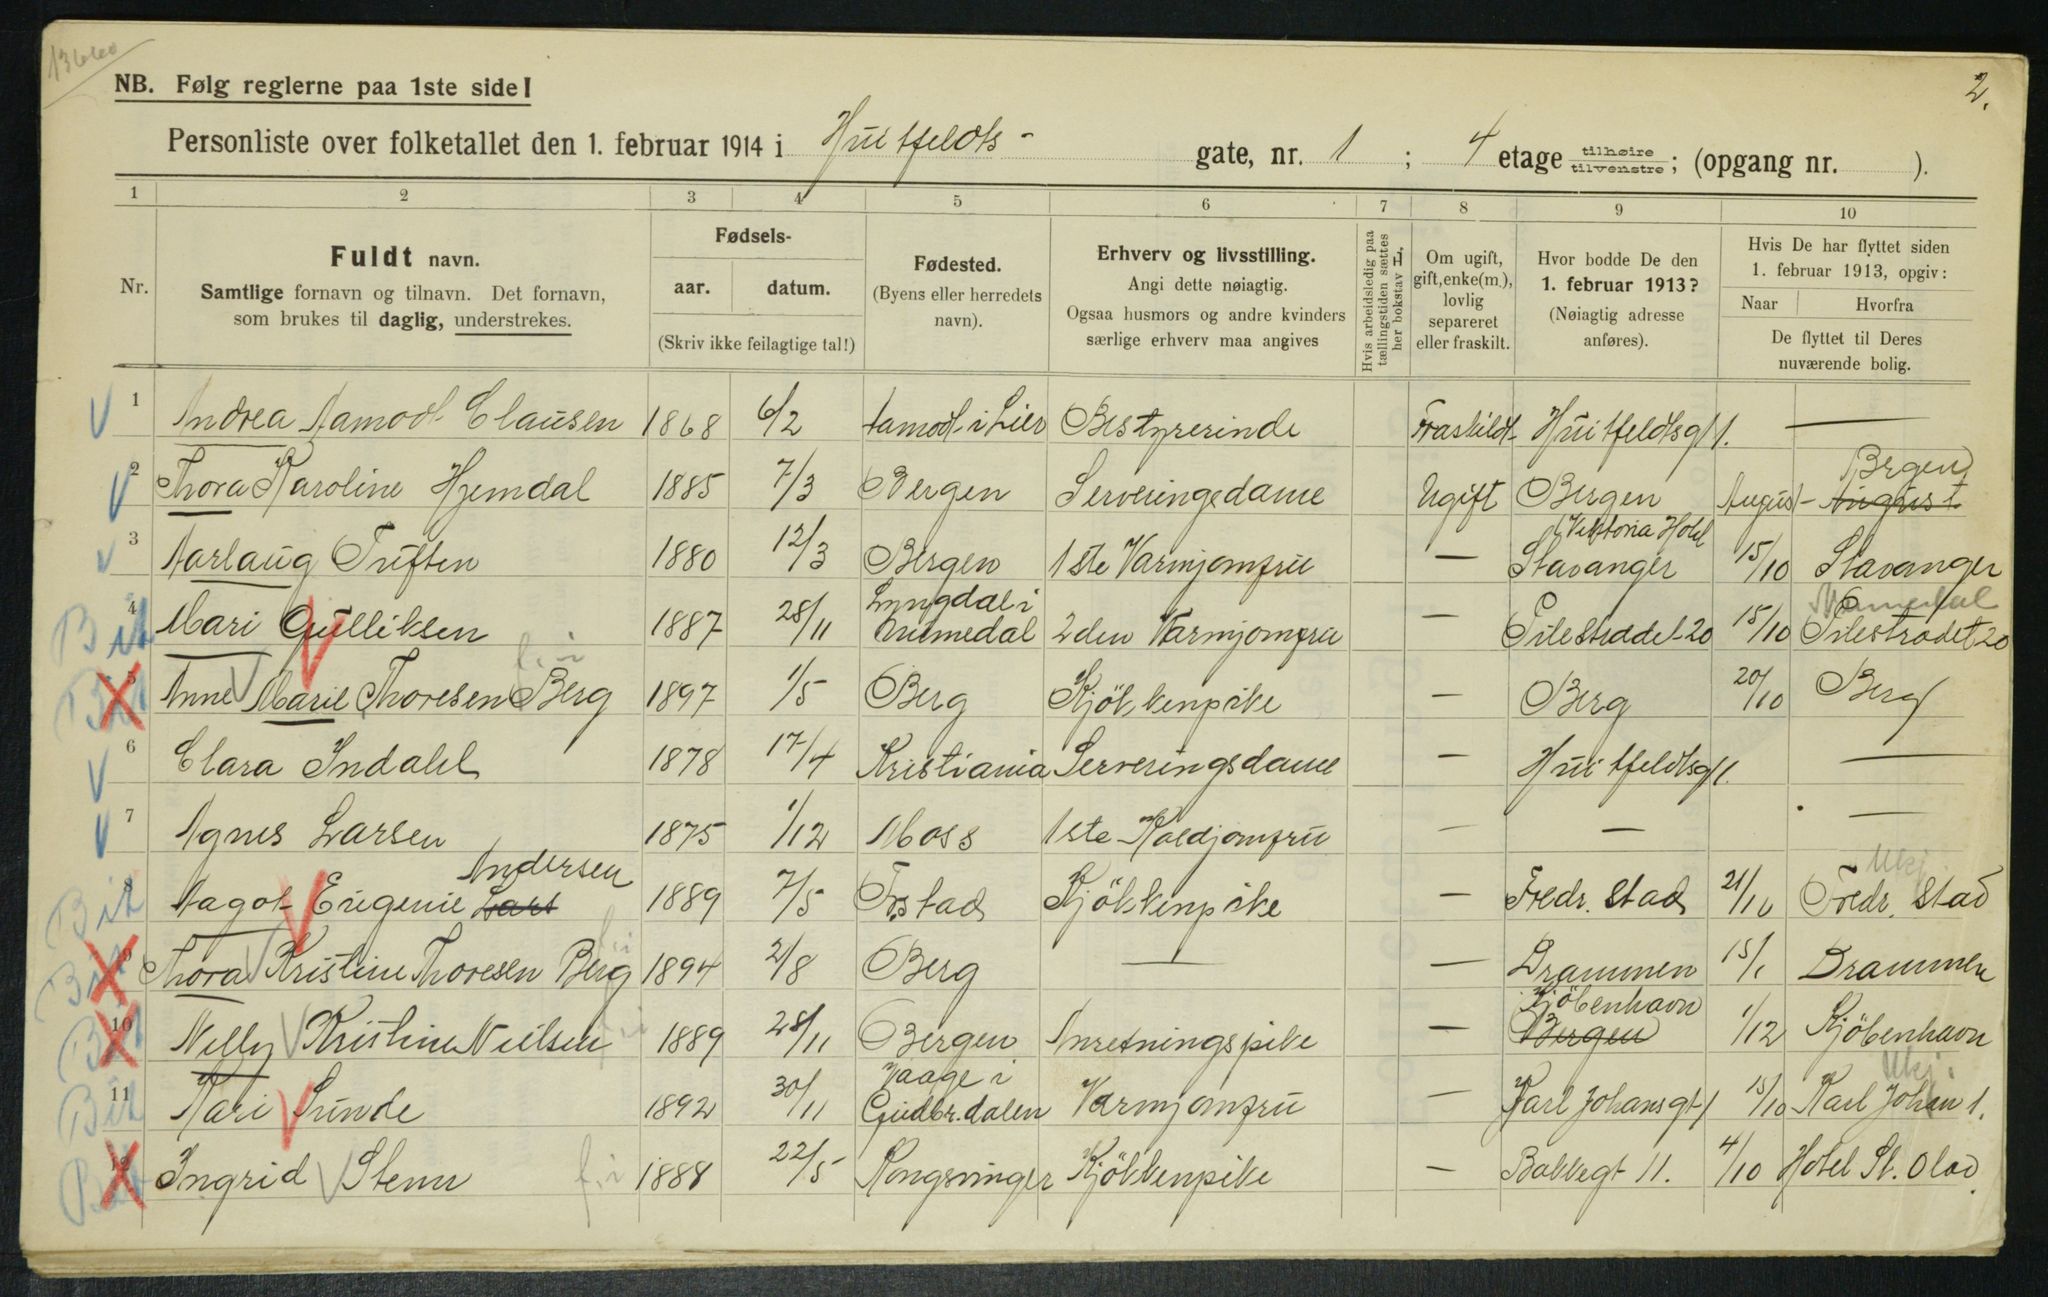 13660
2.
NB. Følg reglerne paa 1ste side!
Personliste over folketallet den 1. februar 1914 i Huitfeldts- gate, nr. 1 ; 4 etage tilhøire tilvenstre ; (opgang nr. ).
1 2 3 4 5 6 7 8 9 10
Nr.
Fuldt navn.
Samtlige fornavn og tilnavn. Det fornavn,
som brukes til daglig, understrekes.
Fødsels-
aar. datum.
(Skriv ikke feilagtige tal!)
Fødested.
(Byens eller herredets
navn).
Erhverv og livsstilling.
Angi dette nøiagtig.
Ogsaa husmors og andre kvinders
særlige erhverv maa angives
Hvis arbeidsledig paa
tællingstiden sættes
her bokstav L.
Om ugift,
gift, enke(m.),
lovlig
separeret
eller fraskilt.
Hvor bodde De den
1. februar 1913?
(Nøiagtig adresse
anføres).
Hvis De har flyttet siden
1. februar 1913, opgiv:
Naar Hvorfra
De flyttet til Deres
nuværende bolig.
V 1 Andrea Aamodt Clausen 1868 6/2 Aamodt i Lier Bestyrerinde Fraskildt Huitfeldtsgt 1. —
Bergen
V 2 Thora Karoline Hjemdal 1885 7/3 Bergen Serveringsdame Ugift Bergen August - August
Viktoria Hotel
V 3 Aarlaug Tuften 1880 12/3 Bergen 1ste Varmjomfru — Stavanger 15/10 Stavanger
Lyngdal i Numedal
Bit 4 Mari Gulliksen 1887 28/11 Numedal 2den Varmjomfru — Pilestrædet 20 15/10 Pilestrædet 20
f.i
Bit 5 Anne Marie Thoresen Berg 1897 1/5 Berg Kjökkenpike — Berg 20/10 Berg
V 6 Clara Indahl 1878 17/4 Kristiania Serveringsdame — Huitfeldtsgt 1. —
V 7 Agnes Larsen 1875 1/12 Moss 1ste Koldjomfru — — —
Andersen Ukj.
Bit 8 Aagot Eugenie Lars 1889 7/5 Fr.stad Kjökkenpike — Fredr. stad 21/10 Fredr. stad
f.i
Bit 9 Thora Kristine Thoresen Berg 1894 2/8 Berg — — Drammen 15/1 Drammen
Kjöbenhavn
Bit 10 Nelly Kristine Nielsen f.i 1889 28/11 Bergen Anretningspike — Bergen 1/12 Kjöbenhavn
Vaage i Ukj.
Bit 11 Kari Sunde 1892 30/11 Gudbr.dalen Varmjomfru — Karl Johansgt 1 15/10 Karl Johan 1.
Bit 12 Ingrid Stenn f.i 1888 22/5 Kongsvinger Kjökkenpike — Bakkegt 11. 4/10 Hotel St. Olav.